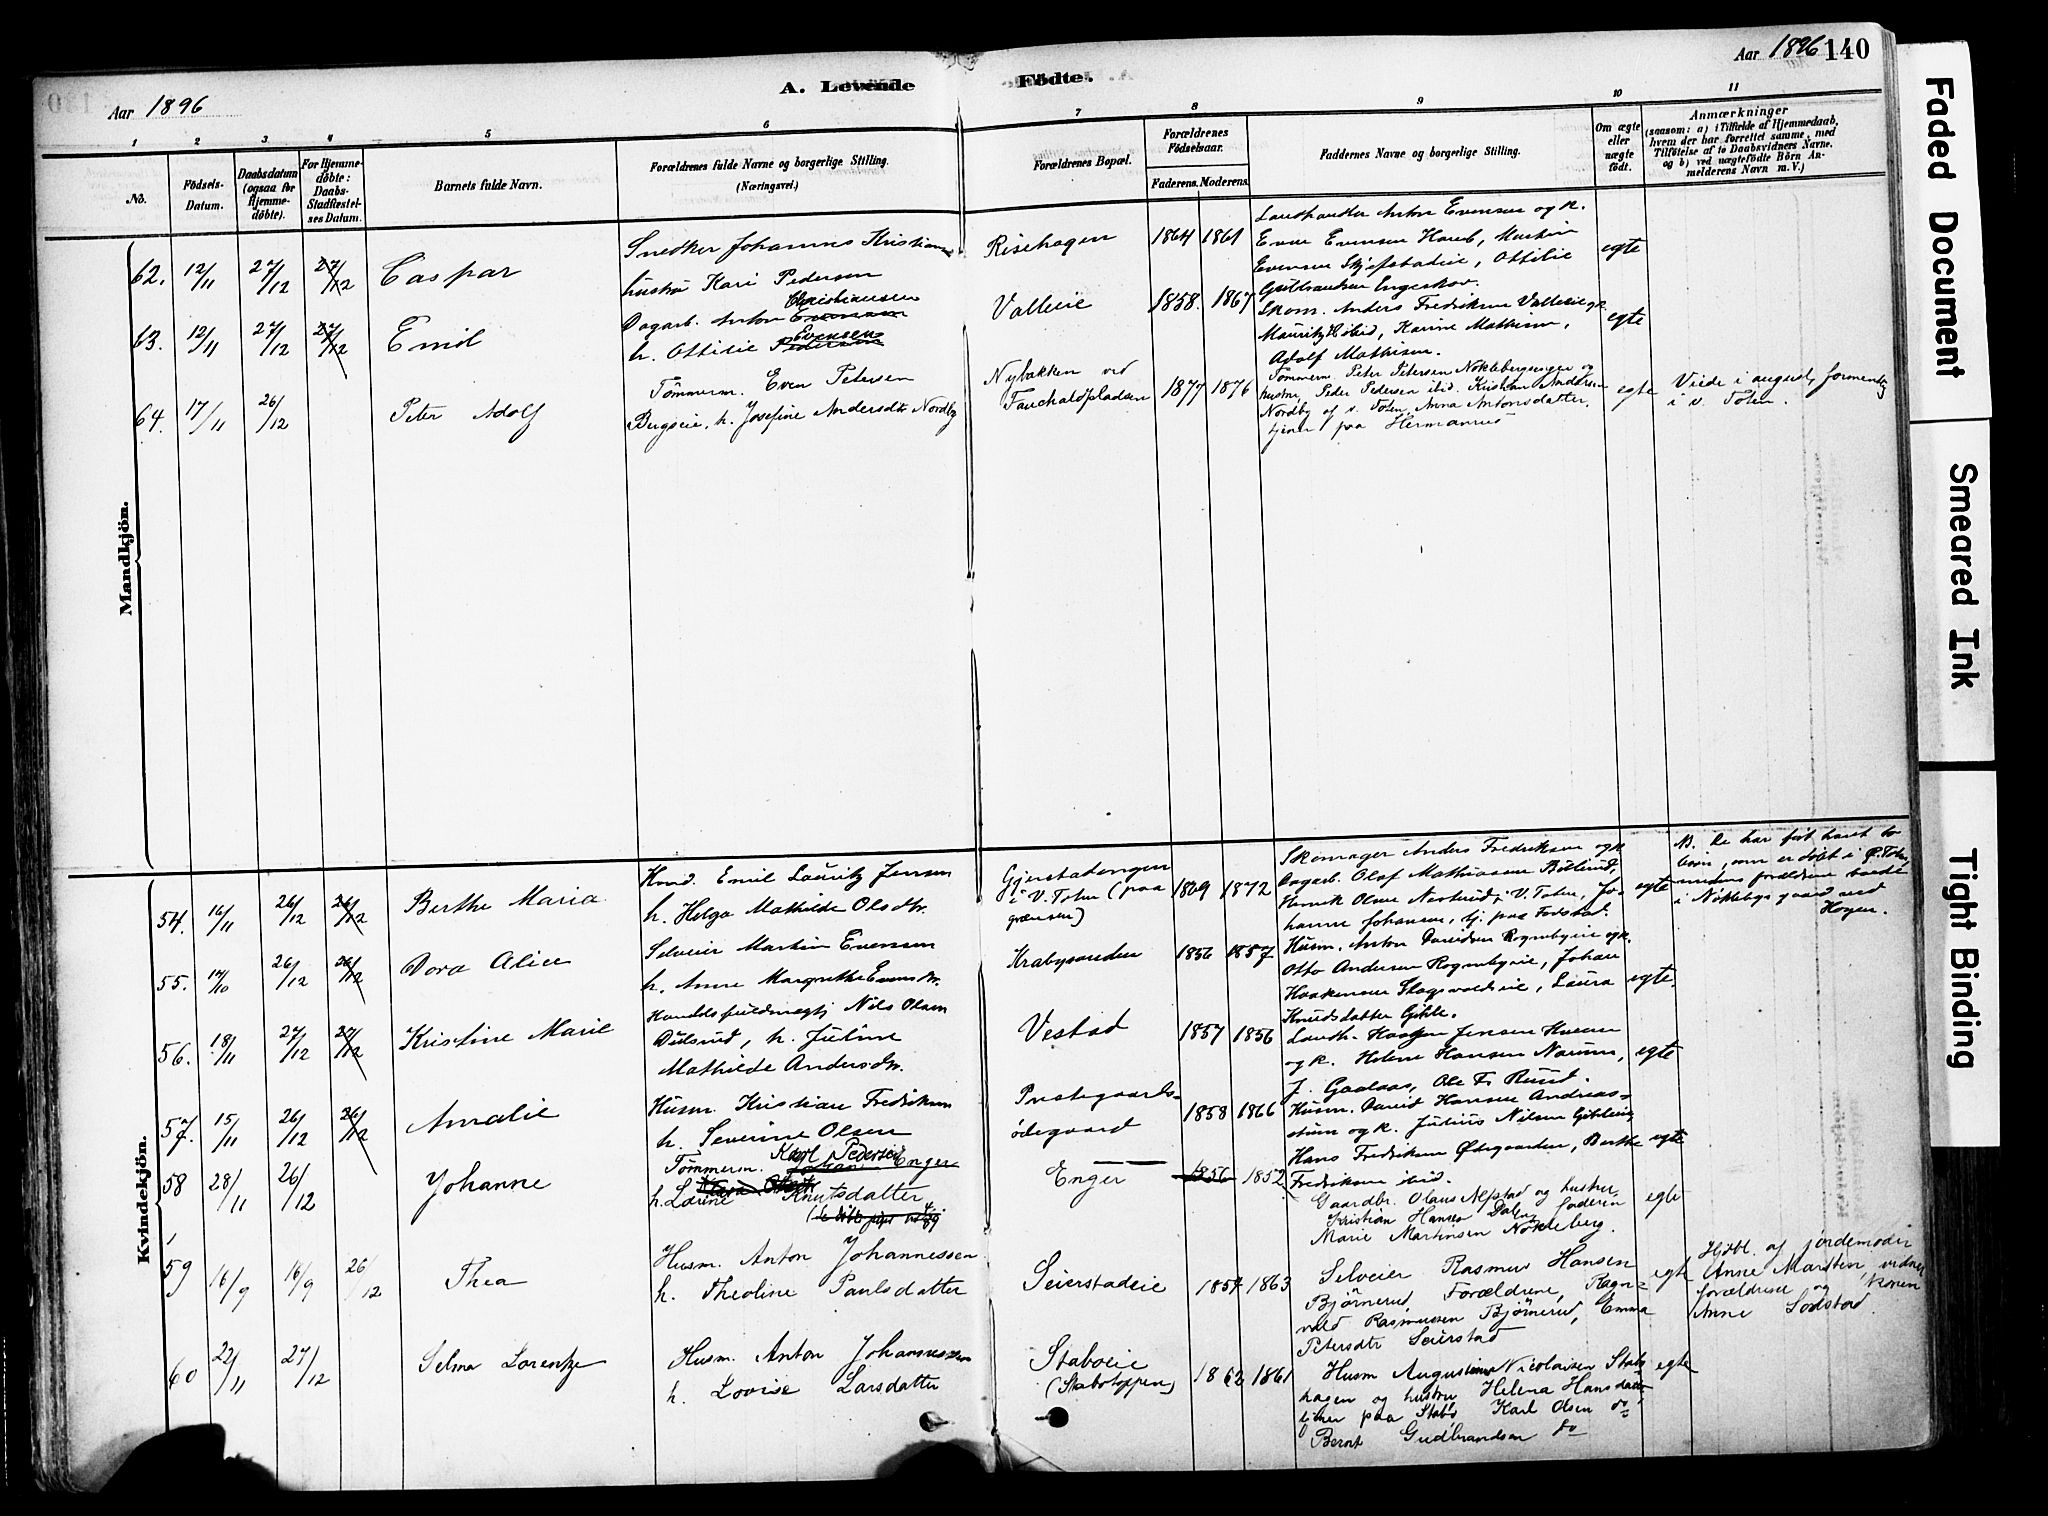 Aar 1896
A. Levende Fødte.
Aar 1896 140
1 2 3 4 5 6 7 8 9 10 11
No.
Fødsels-
Datum.
Daabsdatum
(ogsaa for
Hjemme-
døbte).
For Hjemme-
døbte:
Daabs-
Stadfæstel-
ses Datum.
Barnets fulde Navn.
Forældrenes fulde Navne og borgerlige Stilling.
(Næringsvei.)
Forældrenes Bopæl.
Forældrenes
Fødselsaar.
Faderens. Moderens.
Faddernes Navne og borgerlige Stilling.
Om ægte
eller
uægte
født.
Anmærkninger
(saasom: a) i Tilfælde af Hjemmedaab,
hvem der har forrettet samme, med
Tilføielse af to Daabsvidners Navne.
og b) ved uægtefødte Børn An-
melderens Navn m. V.)
Mandkjön.
62. 12/11 27/12 27/12 Caspar
Snedker Johannes Kristians
hustru Kari Pedersen
Risehagen 1864 1861
Landhandler Anton Evensen og k.
Even Evensen Horeb, Martin
Evensen Skjefstadeie, Ottilie
Gulbrandsen Engeskov.
egte
63. 12/11 27/12 27/12 Emil
Christiansen
Dagarb. Anton Evensen
Evensen
h. Ottilie Pedersen
Valleie 1858. 1867
Skom. Anders Fredriksen Valleie og k.
Mauritz ibid, Karine Mathisen,
Adolf Mathisen.
egte
64. 17/11 26/12 Peter Adolf
Tømmerm. Even Petersen
Bergseie, h. Josefine Andersdtr Nordby
Nybakken ved
Fauchaldpladsen 1877 1876
Tømmerm. Peter Petersen Nøklebergseie og
hustru, Peder Pedersen ibid. Kristian Andersen
Nordby af v. Toten, Anna Antonsdatter,
tjener paa Hermanrud
egte
Viede i august, formentlig
i v. Toten.
Kvindekjön.
54. 16/11 26/12 26/12 Berthe Maria
Kmd. Emil Lauritz Jensen
h. Helga Mathilde Olsdtr.
Gjerstadengen
i V. Toten (paa
grænsen)
1869 1872
Skomager Anders Fredriksen og k
Dagarb. Olaf Mathiasen
Henrik Olsen i V. Toten, Jo-
hanne Johansen, tj. paa Fodstad.
egte
NB. De har født barnet to
børn, som er døbt i Ø. Toten,
medens forældrene boede
i Nøklebys gaard ved
Hagen.
55. 12/10 26/12 26/12 Dora Alice
Selveier Martin Evensen
h. Anne Margrethe Evensdtr.
Krabysanden 1856 1857
Husm. Anton Davidsen Rognebyeie og k.
Otto Andersen Rognebyeie, Johan
Haakensen Skogsvoldseie, Laura
Knudsdatter Gihle.
egte.
56. 18/11 27/12 27/12 Kristine Marie
Handelsfuldmægtig Nils Olsen
h. Juline
Mathilde Andersdtr.
Vestad 1857 1856
Landh. Haagen Jensen
og k. Helene Hansen Narum,
J. Gaalaas, Ole Fr. Ruud.
egte
57. 15/11 26/12 26/12 Amalie
Husm. Kristian Fredriksen
h. Severine Olsen
Prestegaards-
ødegaard 1858 1866
Husm. David Hansen Andreas-
stuen og k. Julius Nilsen
Hans Fredriksen Ødegaarden, Berthe
Fredriksen ibid.
egte
58 28/11 26/12 Johanne
Karl Pedersen
Tømmerm. Johan Enger
h. Lovine Knutsdatter
Enger 1856 1852
Gaardbr. Olaus Alfstad og hustru,
Kristian Hansen Dalen, faderen
Marie Martinsen Nøkleberg.
egte
59 16/9 16/9 26/12 Thea
Husm. Anton Johannessen
h. Theoline Paulsdatter
Seierstadeie 1857 1863
Selveier Rasmus Hansen
Bjørnerud, Forældrene, Ragn-
vald Rasmussen Bjørnerud, Emma
Petersdtr Seierstad
egte
Hjdbt. af jordemoder
Anne Marstein, vidner
forældrene og konen
Anne Sodstad.
60 22/11 27/12 Selma Lorentze
Husm. Anton Johannessen
h. Lovise Larsdatter
Staboeie
(Stabotoppen) 1862 1861
Husm Augustinus Nicolaisen Stabo
hagen og hustru Helena Hansdatter
tjener paa Stabo Karl Olsen do
Bernt Gudbrandsen do
egte
Faded Document
Smeared Ink
Tight Binding